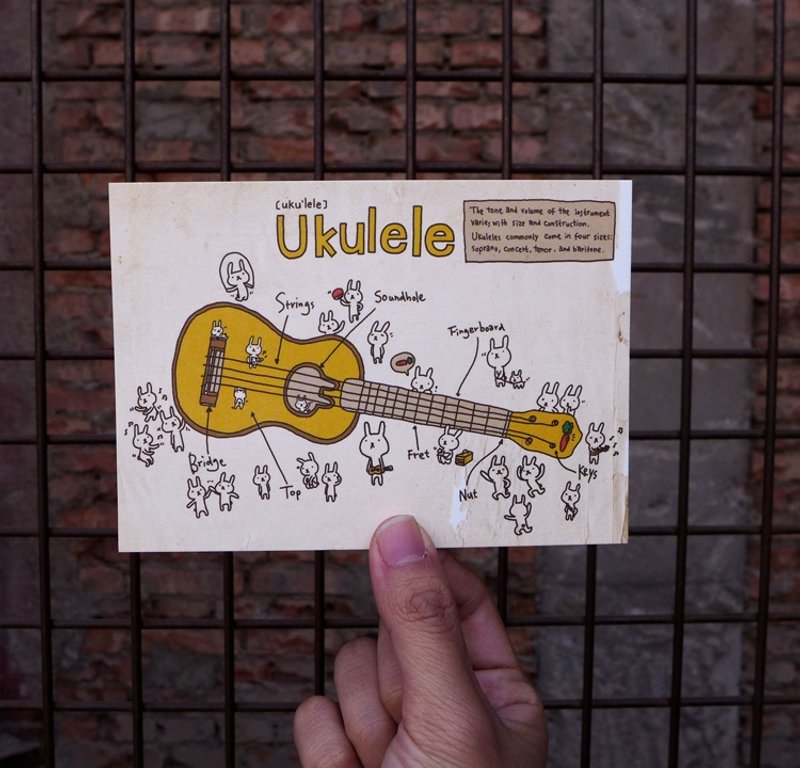 [uku'lele]
Ukulele
The tone and volume of the instrument
varies with size and construction.
Ukuleles commonly come in four sizes:
soprano, concert, tenor. and baritone.
Strings
Soundhole
Fingerboard
Bridge
Top
Fret
Nut
Keys